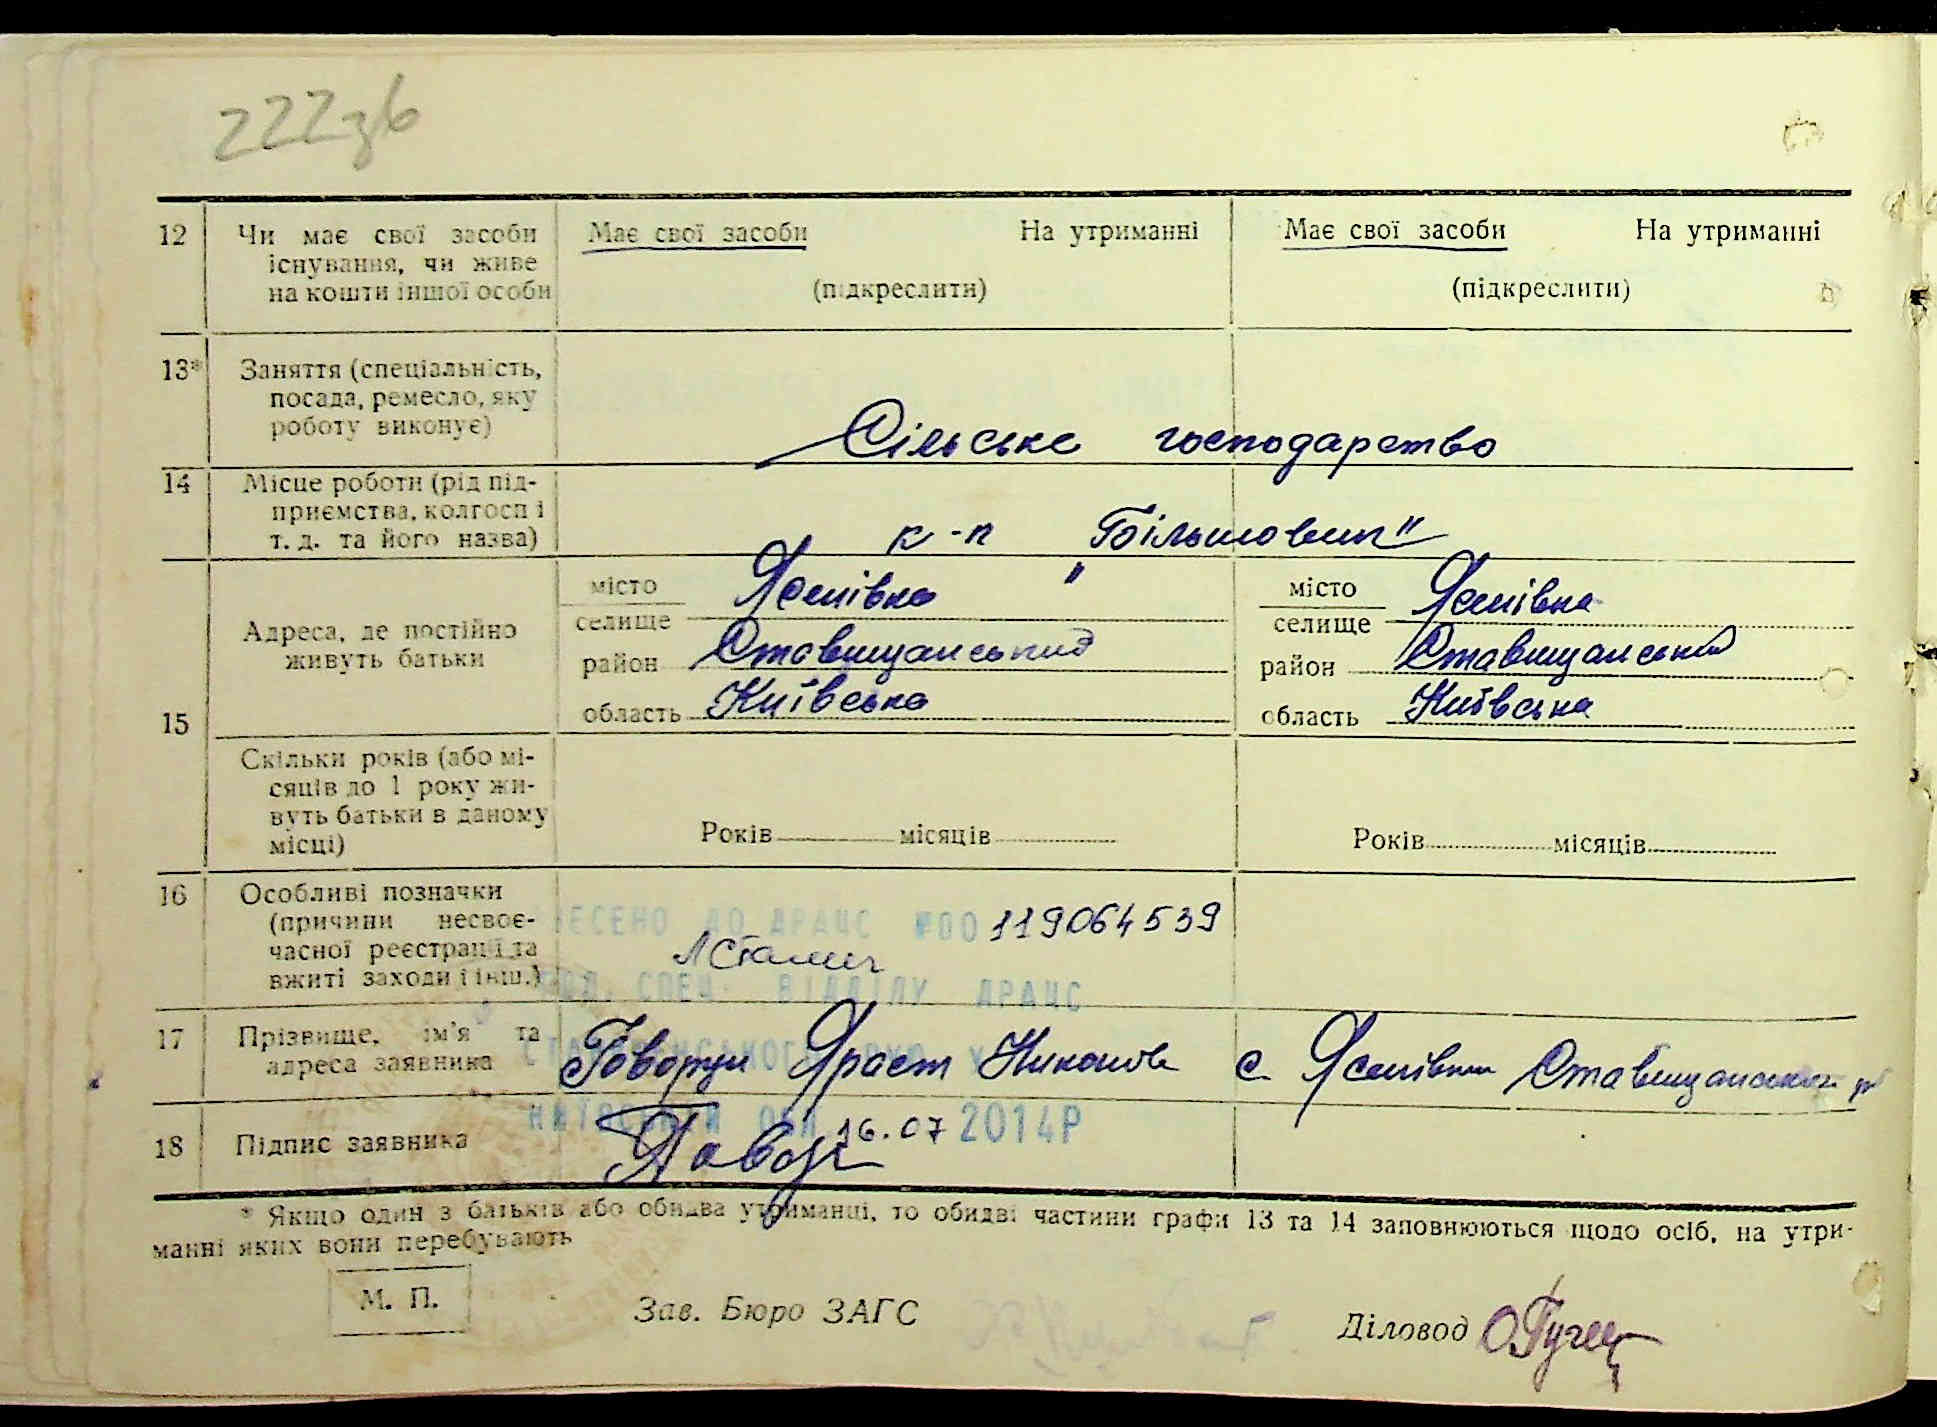 222зв
12 Чи має свої засоби існування, чи живе на кошти іншої особи
Має свої засоби На утриманні
(підкреслити)
Має свої засоби На утриманні
(підкреслити)
13* Заняття (спеціальність, посада, ремесло, яку роботу виконує)
Сільське господарство
14 Місце роботи (рід підприємства, колгосп і т. д. та його назва)
к-п "Більшовик"
15 Адреса, де постійно живуть батьки
місто селище Ясенівка
район Ставищанський
область Київська
місто селище Ясенівка
район Ставищанський
область Київська
Скільки років (або місяців до 1 року живуть батьки в даному місці)
Років місяців
Років місяців
16 Особливі позначки (причини несвоєчасної реєстрації та вжиті заходи і інш.)
ВНЕСЕНО ДО ДРАЦС №00119064539
СПЕЦ. ВІДДІЛУ ДРАЦС
17 Прізвище, ім'я та адреса заявника
с. Ясенівка Ставищанський р
18 Підпис заявника
КИЇВСЬКІЙ ОБЛ 16.07 2014Р
* Якщо один з батьків або обидва утриманці, то обидві частини графи 13 та 14 заповнюються щодо осіб, на утри-
манні яких вони перебувають
М. П.
Зав. Бюро ЗАГС
Діловод